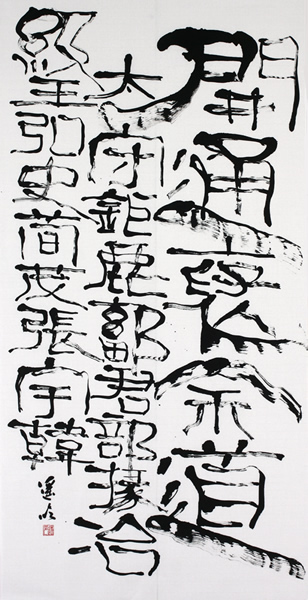 開通褒余道
太守鉅鹿鄐君部掾冶
級王弘史荀茂張宇韓